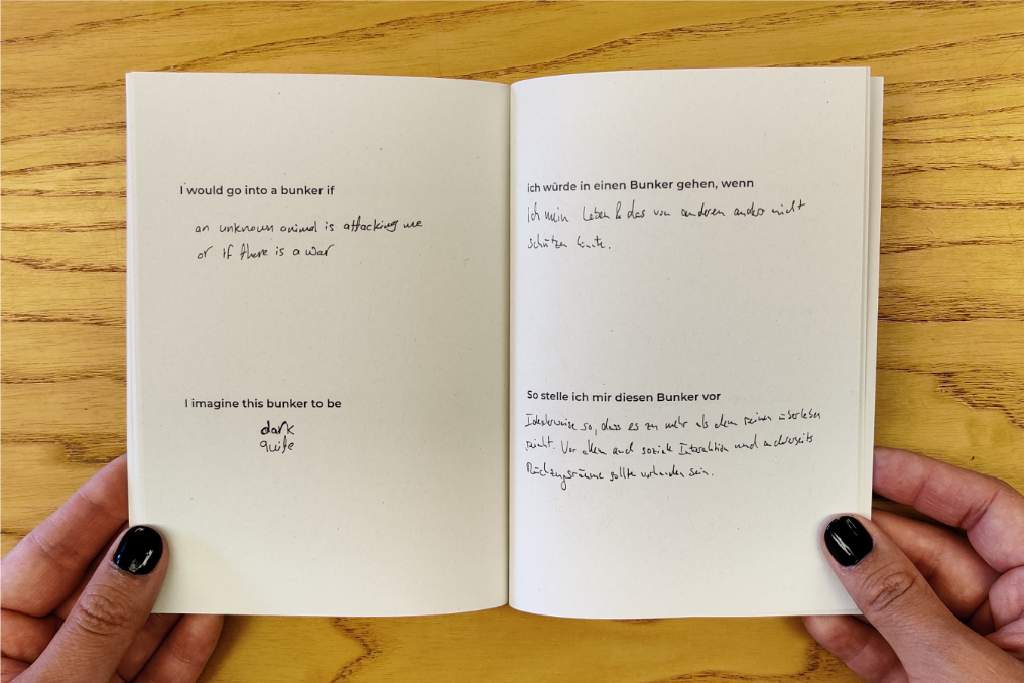 I would go into a bunker if
an unknown animal is attacking me
or if there is a war
I imagine this bunker to be
dark
quite
ich würde in einen Bunker gehen, wenn
ich mein Leben & das von anderen anders nicht
schützen könnte.
So stelle ich mir diesen Bunker vor
Idealerweise so, dass es zu mehr als dem reinen überleben
reicht. Vor allem auch soziale Interaktion und andererseits
Rückzugsräume sollte vorhanden sein.